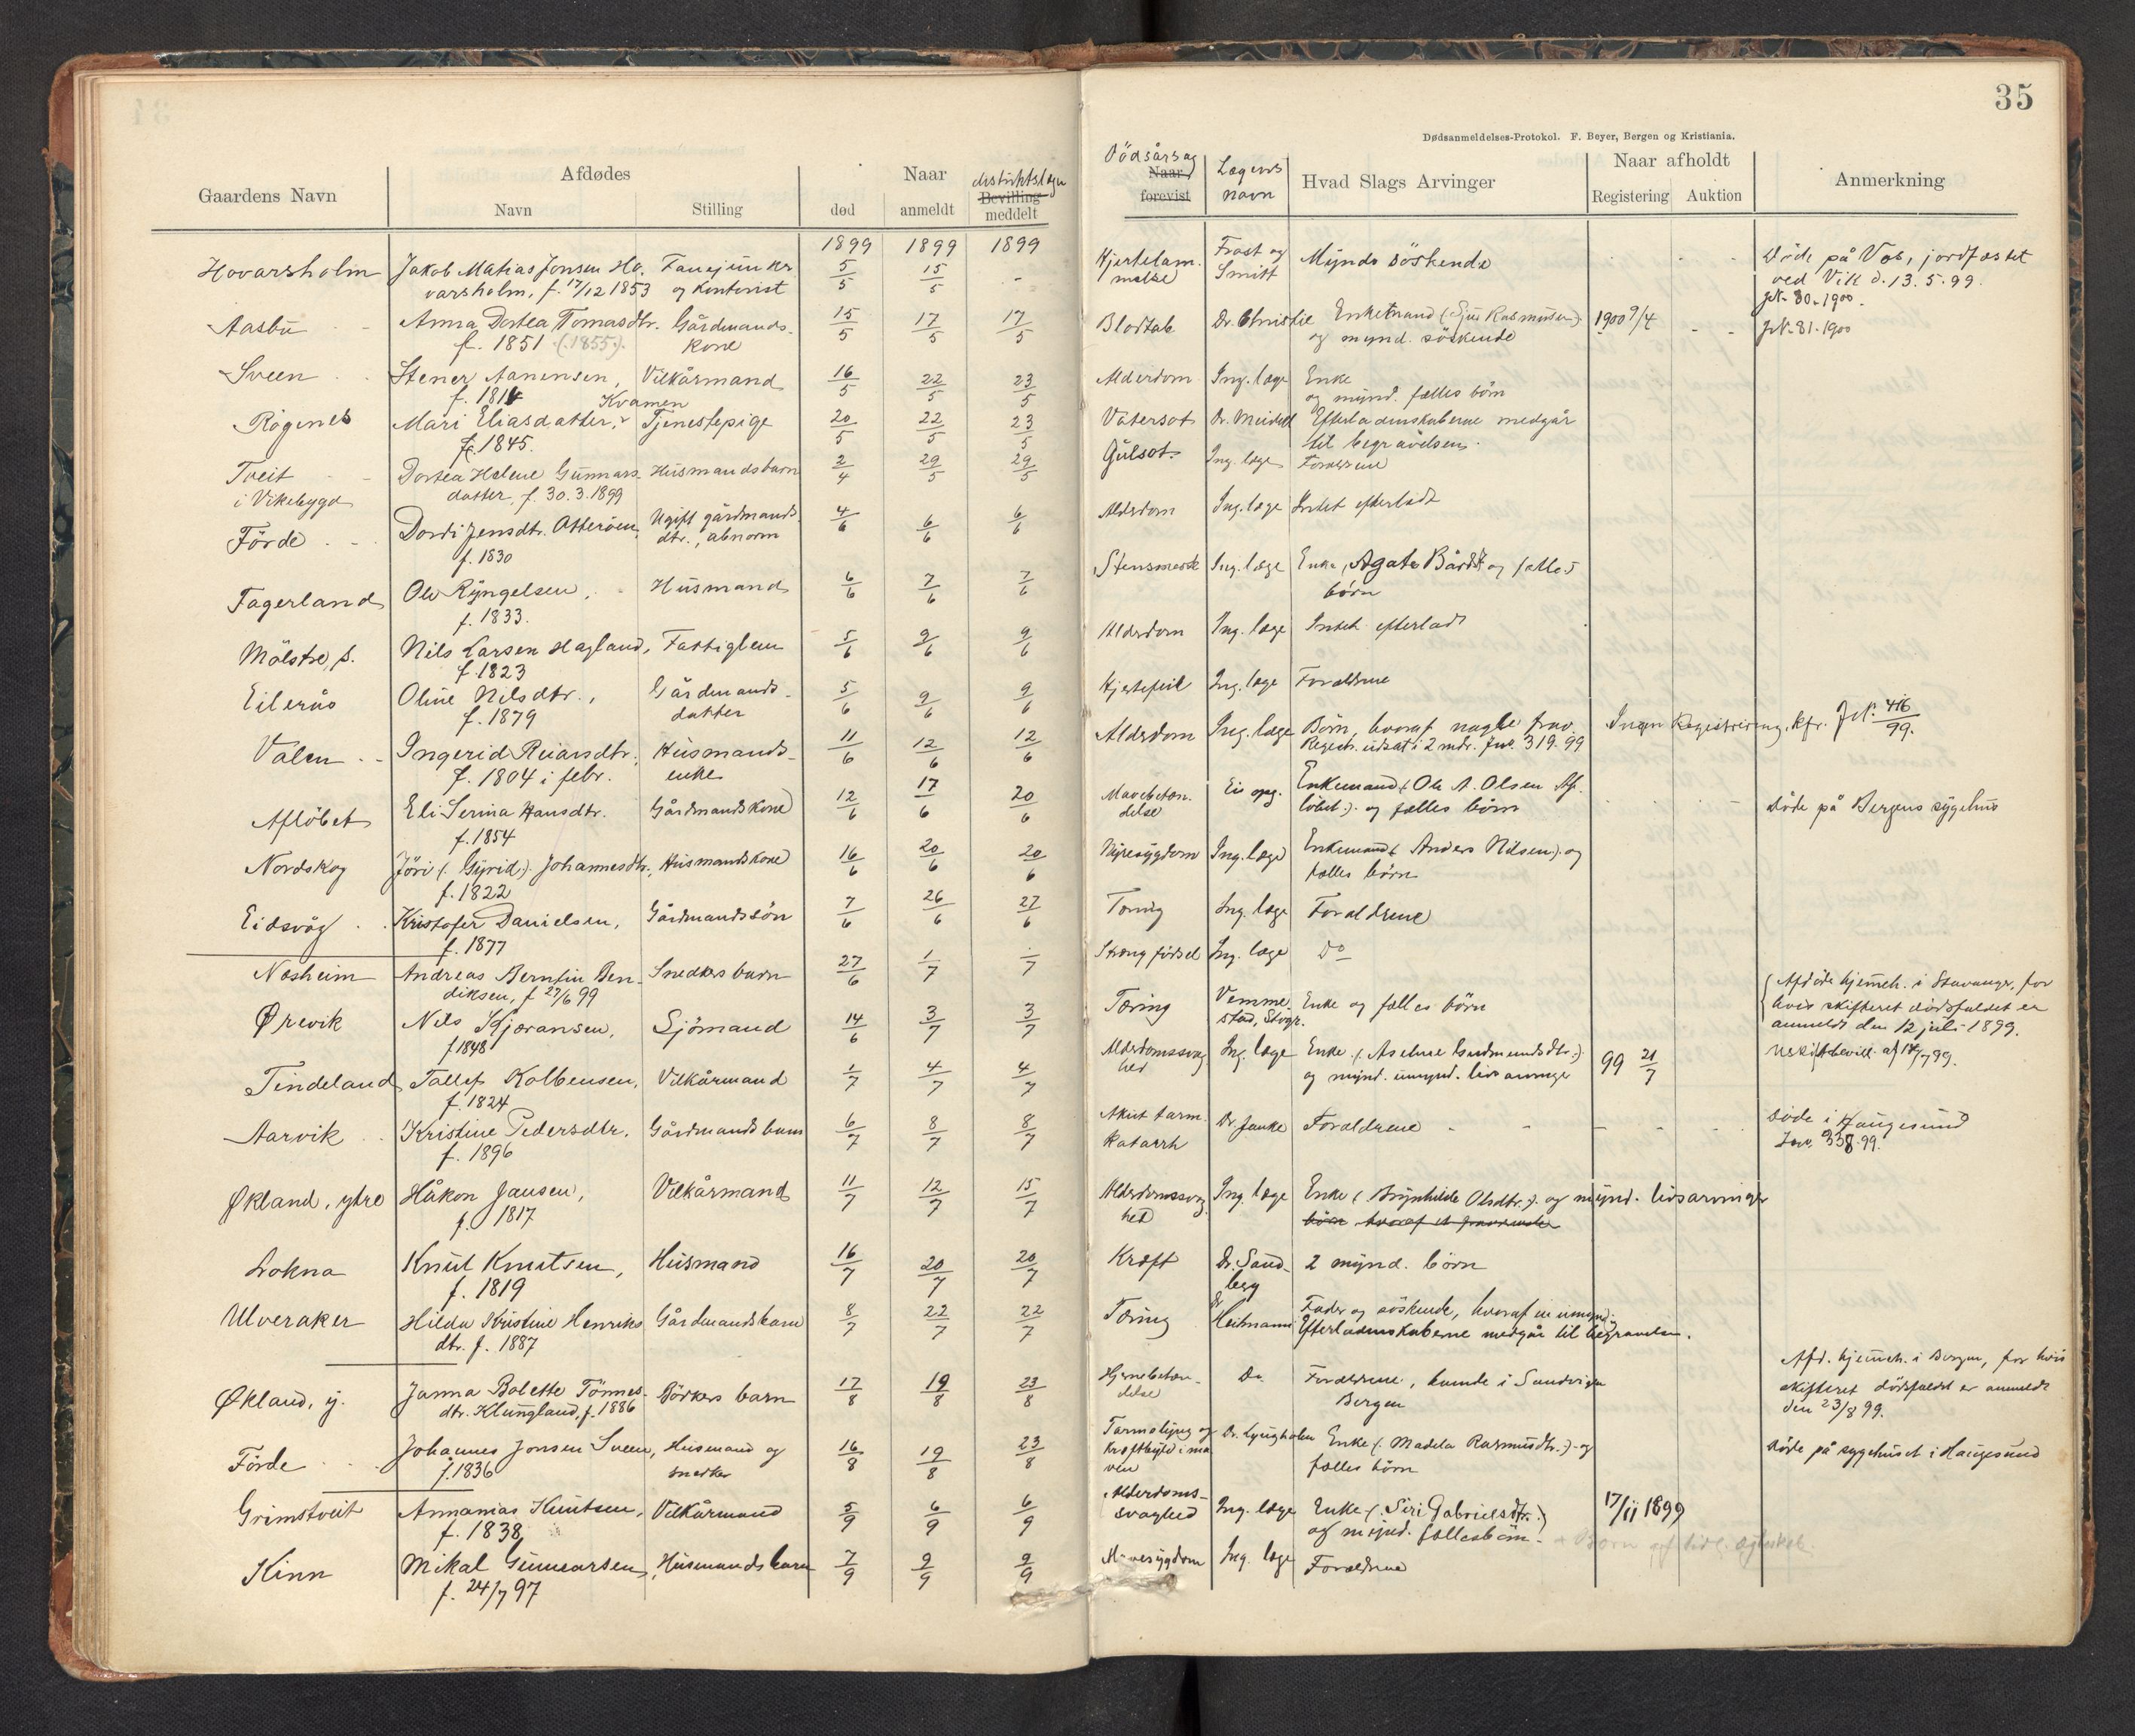 35
Dødsanmeldelses-Protokol. F. Beyer, Bergen og Kristiania.
Gaardens Navn
Afdødes
Navn
Stilling
Naar
død
anmeldt
Bevilling
meddelt
Dödsårsag
Naar
forevist
Lægens
navn
Hvad Slags Arvinger
Naar afholdt
Registering
Auktion
Anmerkning
1899 1899 1899
Hovarsholm Jakob Matias Jonsen Ho- Fanejunker 5/5 15/5 - Hjertelam- Frost og Mynd. söskende Døde på Vos, jordfæstet
varsholm, f. 17/12 1853 og Kontorist melse Smitt ved Vik d. 13.5.99.
JN. 80-1900.
Aasbu Anna Dortea Tomasdtr. Gårdmands- 15/5 17/5 17/5 Blodtab Dr. Christie Enkemand (Sjur Rasmusen) 1900 9/4 JN. 81-1900
f. 1851 (1855) kone og mynd. söskende
Sveen Stener Aanensen, Vilkårmand 16/5 22/5 23/5 Alderdom Ing. læge Enke
og mynd. fælles börn
Kvamen
Rögenes Mari Eliasdatter, Tjenestepige 20/5 22/5 23/5 Vatersot Dr. Meidell Efterladenskaberne medgår
f. 1845. til begravelsen.
Tveit Dortea Helene Gunnars- Husmandsbarn 2/4 29/5 29/5 Gulsot Ing. læge Forældrene
i Vikebygd datter, f. 30.3.1899
Förde Dordi Jensdtr. Otteröen, Ugift gårdmands- 4/6 6/6 6/6 Alderdom Ing. læge Intet efterladt
f. 1830 dtr., abnorm
Fagerland Ole Ryngelsen, Husmand 6/6 7/6 7/6 Ing. læge Enke, Agate Bårdsdtr og fælles
f. 1833. börn
Mölstre, s. Nils Larsen Hagland, Fattiglem 5/6 9/6 9/6 Alderdom Ing. læge Intet efterladt
f. 1823
Eilerås Oline Nilsdtr., Gårdmands- 5/6 9/6 9/6 Hjertefeil Ing. læge Forældrene
f. 1879 datter
Valen Ingerid Reiarsdtr. Husmands- 11/6 12/6 12/6 Alderdom Ing. læge Börn, hvoraf nogle frav. Ingen Registrering, kfr. JN. 416/99.
f. 1804 i febr. enke Registr. udsat i 2 mdr. Jno. 319.99
Aflöbet Eli Serina Hansdtr. Gårdmandskone 12/6 17/6 20/6 Mavebetæn- Ei opg. Enkemand (Ole A. Olsen Af- Döde på Bergens sygehus
f. 1854 delse löbet). og fælles börn
Nordskog Jöri (Gyrid) Johannesdtr., Husmandskone 16/6 20/6 20/6 Nyresygdom Ing. læge Enkemand (Anders Nilsen) og
f. 1822 fælles börn
Eidsvåg Kristofer Danielsen, Gårdmandssön 7/6 26/6 27/6 Tæring Ing. læge Forældrene
f. 1877
Næsheim Andreas Berntin Ben- Snedkersbarn 27/6 1/7 1/7 Streng födsel Ing. læge Do
diksen, f 27/6 99
Ørevik Nils Kjoransen, Sjömand 14/6 3/7 3/7 Tæring Vemme- Enke og fælles börn Afdöde hjemmeh. i Stavanger, for
f 1848 stad, Stvgr. hvis skifteret dödsfaldet er
anmeldt den 12 juli 1899.
Tindeland Tollef Kolbensen, Vilkårmand 1/7 4/7 4/7 Alderdomssvag- Ing. læge Enke (Aselne Gudmundsdtr.) 99 21/7
f. 1824 hed og mynd. umynd. livsarvinger
Aarvik Kristine Pedersdtr. Gårdmandsbarn 6/7 8/7 8/7 Akut tarm- Dr. Janke Forældrene Döde i Haugesund
f. 1896 katarrh Jno. 338.99.
Økland, ytre Håkon Jansen, Vilkårmand 11/7 12/7 15/7 Alderdomssvag- Ing. læge Enke (Brynhilde Olsdtr.) og mynd. livsarvinger
f. 1817 hed
Lokna Knut Knutsen, Husmand 16/7 20/7 20/7 Kræft Dr. Sand- 2 mynd. börn
f. 1819 berg
Ulveraker Hilda Kristine Henriks Gårdmandsbarn 8/7 22/7 22/7 Tæring Dr Heitmann Fader og söskende, hvoraf en umynd.
dtr. f. 1887 Efterladenskaberne medgår til begravelsen.
Økland, y. Janna Bolette Tönnes- Bödkers barn 17/8 19/8 23/8 Hjernebetæn- Do Forældrene, boende i Sandviken Afd. hjemmeh. i Bergen, for hvis
dtr. Klungland, f. 1886 delse Bergen skifteret dödsfaldet er anmeldt
den 23/8 99.
Förde Johannes Jonsen Sveen, Husmand og 16/8 19/8 23/8 Dr. Lyngholm Enke (Madela Rasmusdtr.) og Döde på sygehuset i Haugesund
f. 1836 snedker fælles börn
Grimstveit Annanias Knutsen, Vilkårmand 5/9 6/9 6/9 Alderdoms- Ing. læge Enke (Siri Gabrielsdtr.) 17/11 1899
f. 1838 svaghed og mynd. fællesbörn.
Kinn Mikal Gunnarsen, Husmandsbarn 7/9 9/9 9/9 Mavesygdom Ing. læge Forældrene
f. 24/7 97